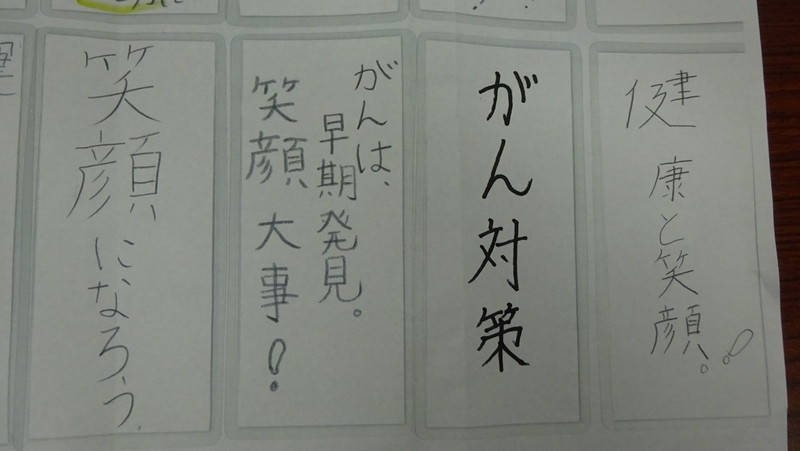 健康と笑顔。!
がん対策
がんは、
早期発見。
笑顔、大事!
笑顔になろう。